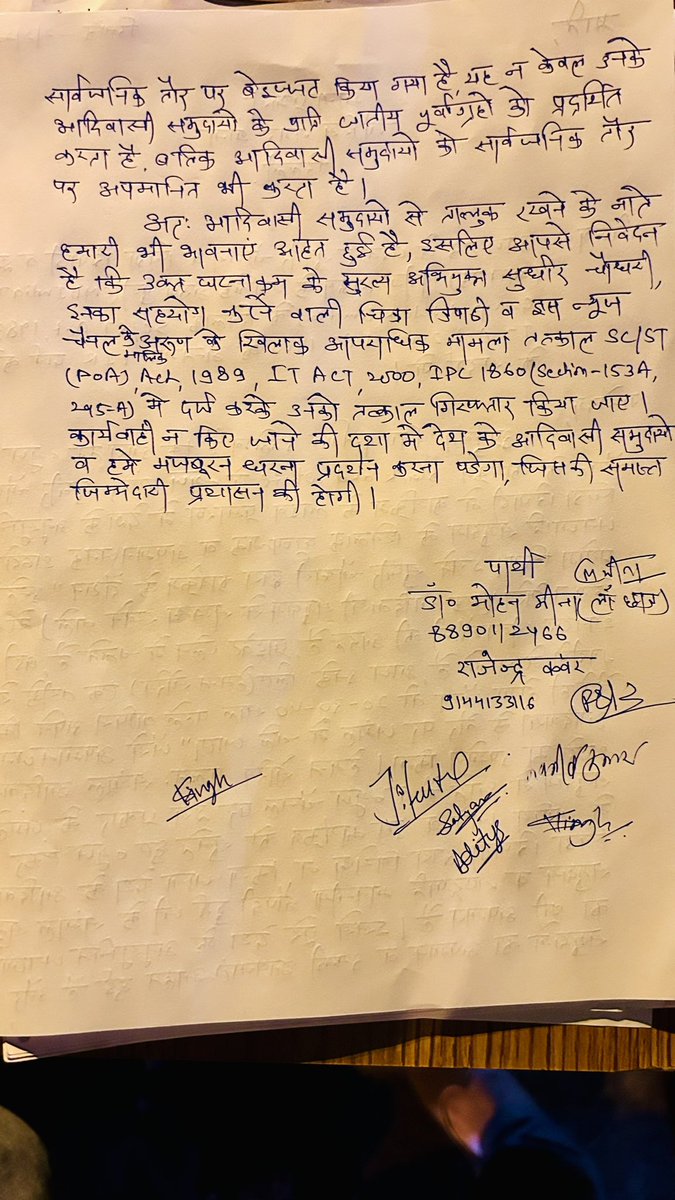 सार्वजनिक तौर पर बेइज्जत किया गया है, यह न केवल उनके
आदिवासी समुदायो के प्रति जातीय पूर्वाग्रहो को प्रदर्शित
करता है, बल्कि आदिवासी समुदायो को सार्वजनिक तौर
पर अपमानित भी करता है।
अतः आदिवासी समुदायो से ताल्लुक रखने के नाते
हमारी भी भावनाएं आहत हुई है, इसलिए आपसे निवेदन
है कि उक्त घटनाक्रम के मुख्य अभियुक्त सुधीर चौधरी,
इनका सहयोग करने वाली चित्रा त्रिपाठी व इस न्यूज
चैनल के मालिक अरूण के खिलाफ आपराधिक मामला तत्काल SC/ST
(POA), Act, 1989, IT ACT, 2000, IPC 1860 (Section-153A,
295-A) में दर्ज करके उनको तत्काल गिरफ्तार किया जाए।
कार्यवाही न किए जाने की दशा में देश के आदिवासी समुदायो
व हमे मजबूरन धरना प्रदर्शन करना पडेगा, जिसकी समस्त
जिम्मेदारी प्रशासन की होगी।
प्रार्थी
डॉ० मोहन मीना (लॉ छात्र)
8890112466
राजेन्द्र कवर
9144133116
Singh
Aditya